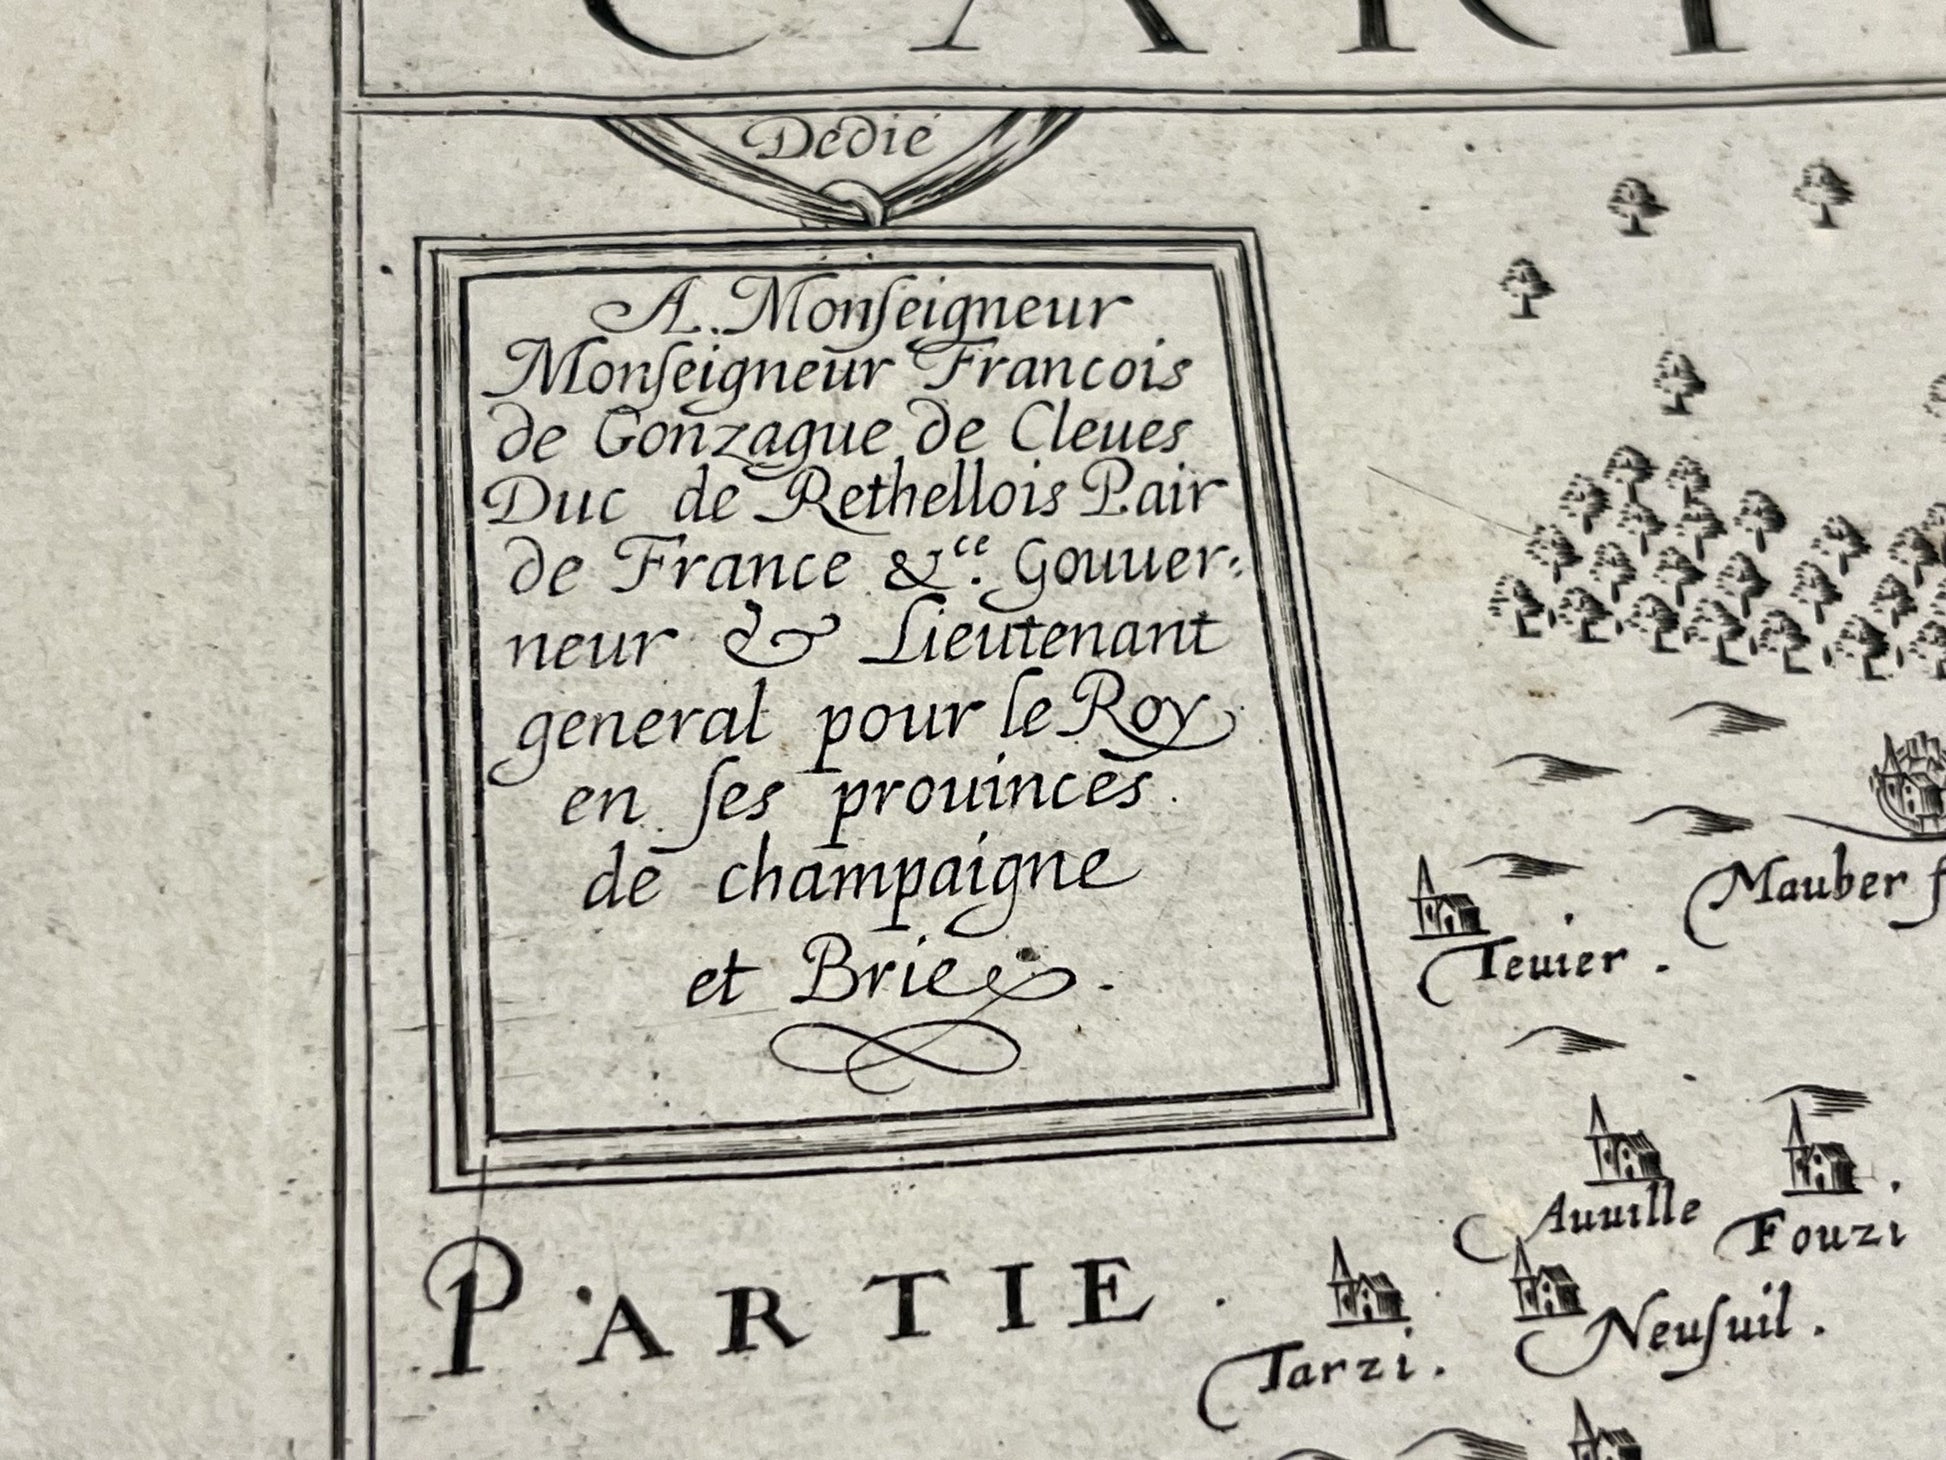 CART
Dedié
A. Monſeigneur
Monſeigneur Francois
de Gonzague de Cleues
Duc de Rethellois Pair
de France &ce. Gouuer-
neur & Lieutenant
general pour le Roy
en ſes prouinces
de champaigne
et Brie
Mauber f
Teuier.
Auuille
Fouzi
Neuſuil.
Tarzi.
PARTIE.